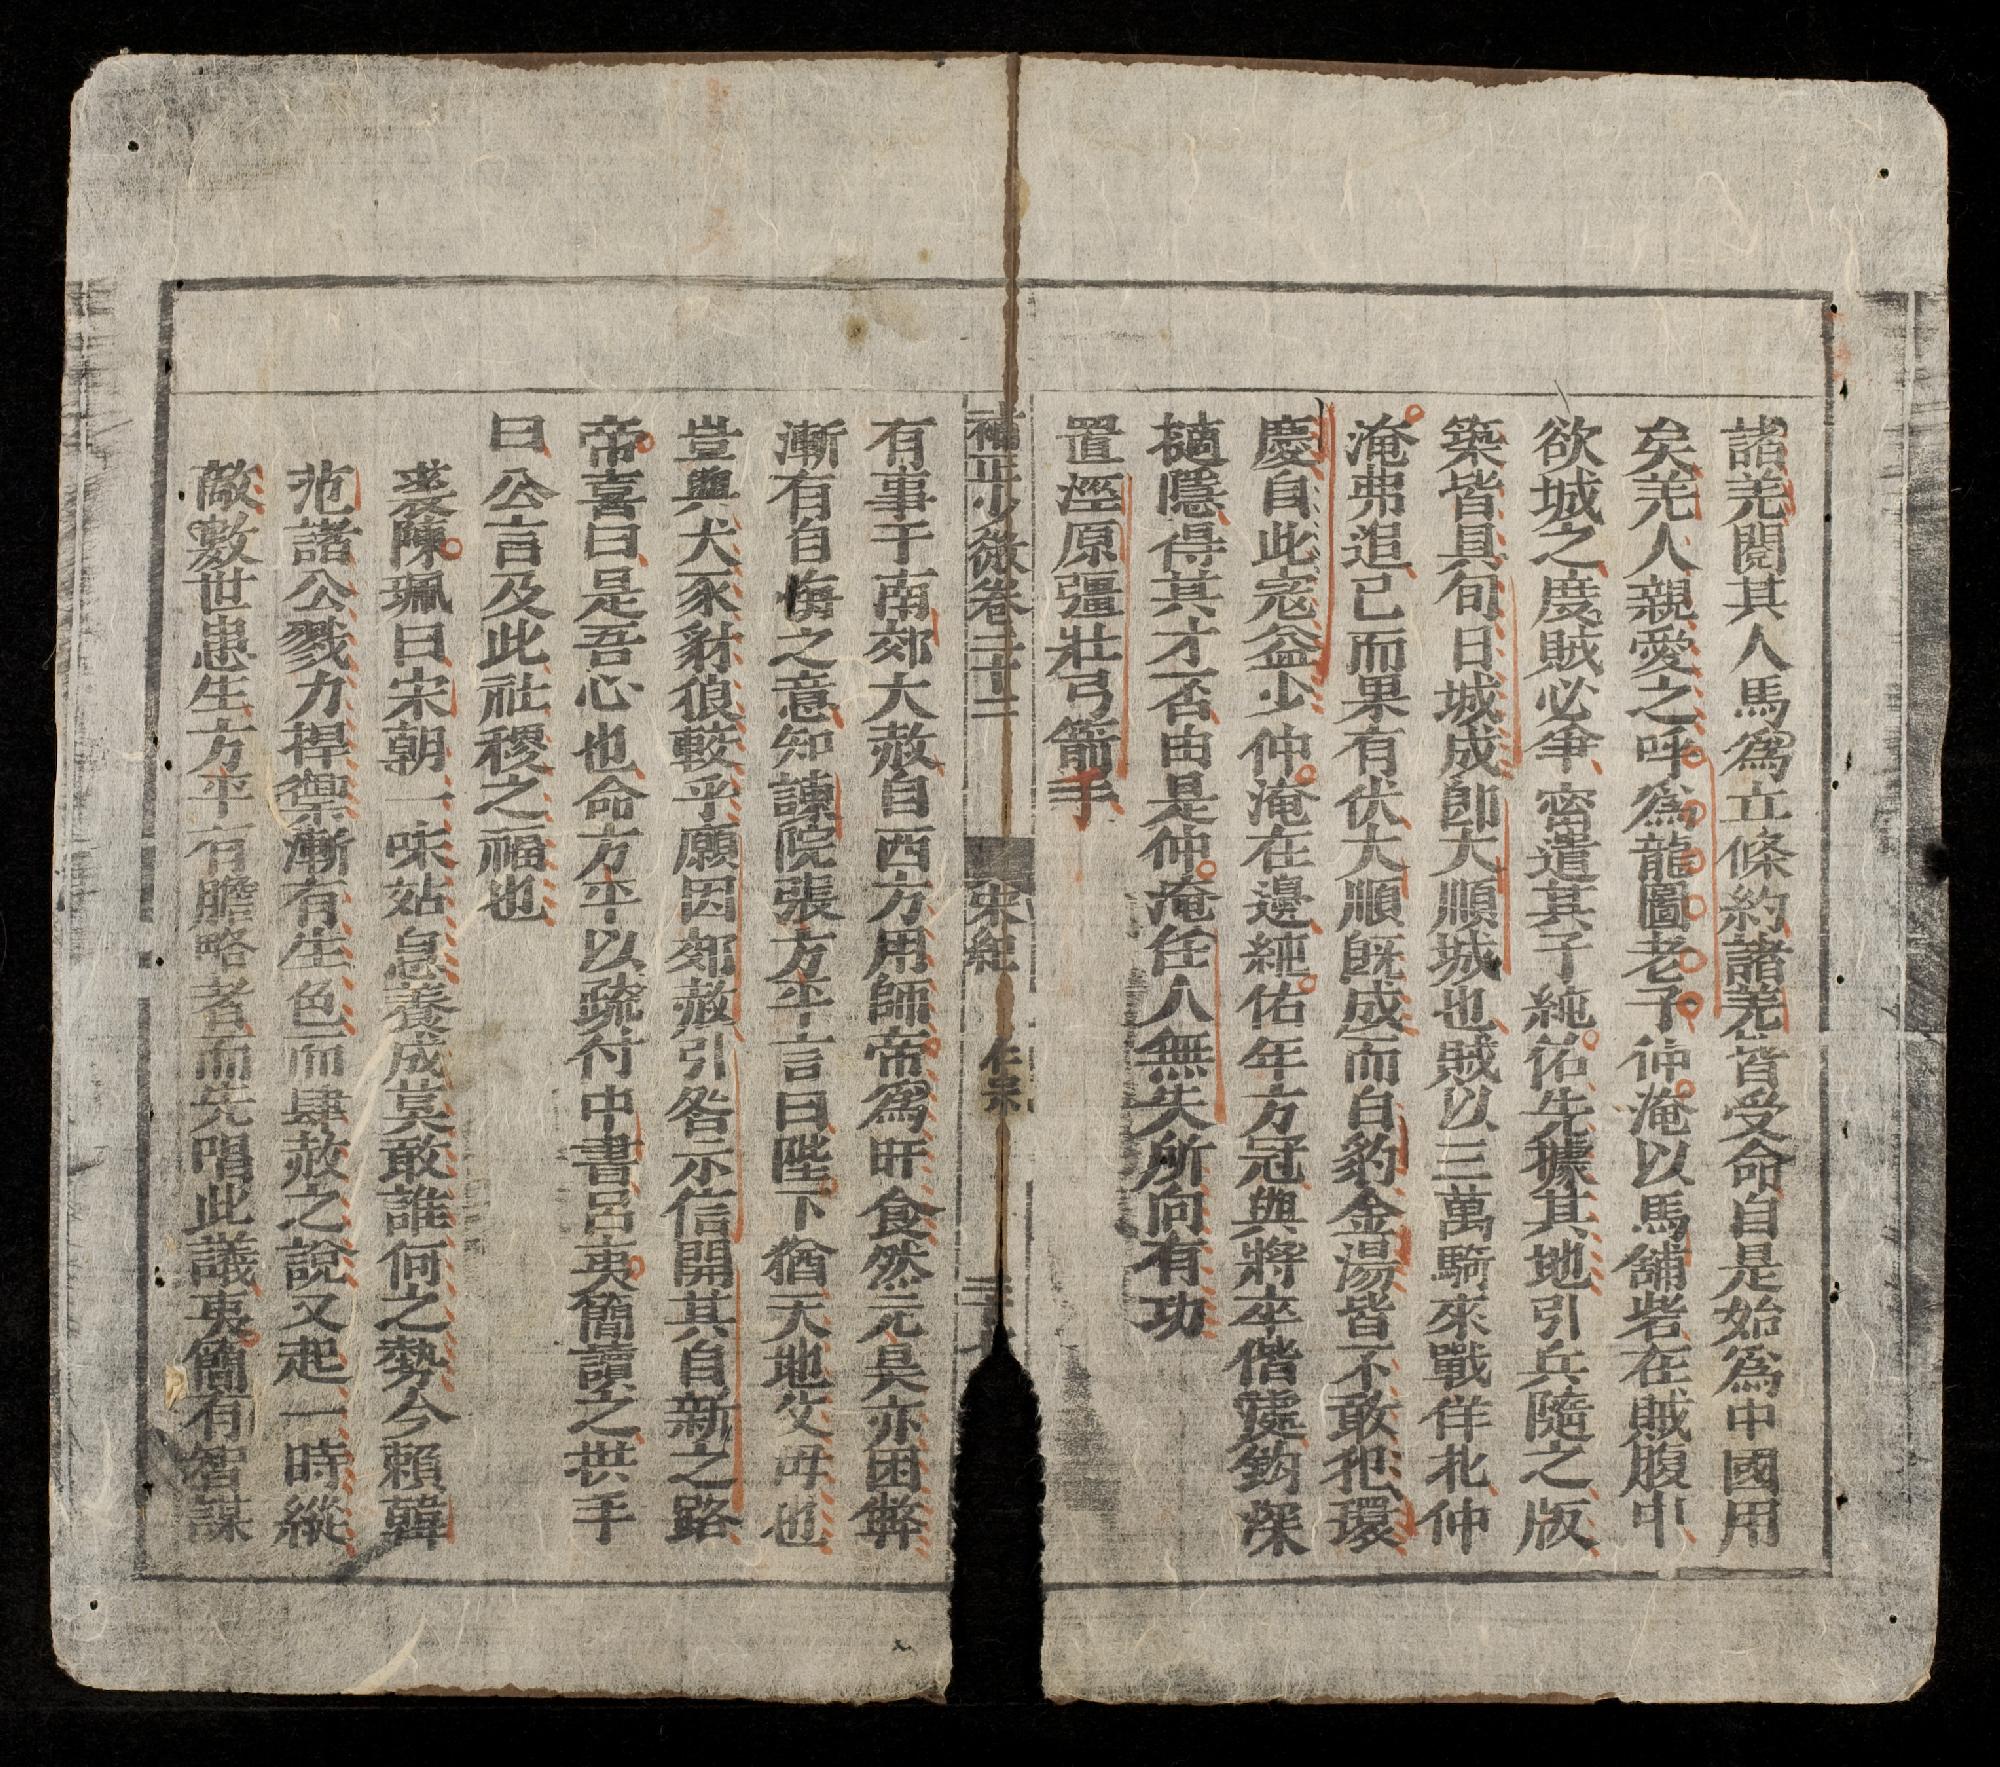 諸羌閱其人馬爲立條約諸羌皆受命自是始爲中國用
矣羌人親愛之呼爲龍圖老子仲淹以馬鋪砦在賊腹中
欲城之度賊必爭密遣其子純佑先據其地引兵隨之版
築皆具旬日城成卽大順城也賊以三萬騎來戰佯北仲
淹弗追已而果有伏大順旣成而白豹金湯皆不敢犯環
慶自此寇益少仲淹在邊純佑年方冠與將卒偕處鉤深
擿隱得其才否由是仲淹任人無失所向有功
置涇原彊壯弓箭手
補正少微卷二十二 宋紀 仁宗
有事于南郊大赦自西方用師帝爲旰食然元昊亦困弊
漸有自悔之意知諫院張方平言曰陛下猶天地父母也
豈與犬豕豺狼較乎願因郊赦引咎示信開其自新之路
帝喜曰是吾心也命方平以疏付中書呂夷簡讀之拱手
曰公言及此社稷之福也
裘陳珮曰宋朝一味姑息養成莫敢誰何之勢今賴韓
范諸公戮力捍禦漸有生色而肆赦之說又起一時縱
敵數世患生方平有膽略者而先唱此議夷簡有智謀